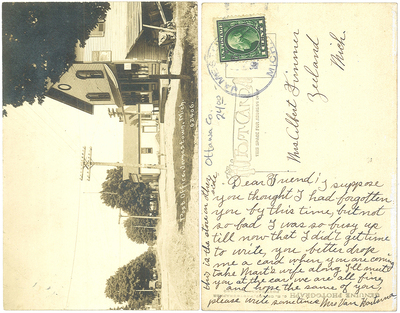 Ottawa Co
24.00
this is the store on other side
Mrs Albert Zimmer
Zeeland
Mich.
POST CARD
Dear Friend; I suppose
you thought I had forgotten
you by this time, but not
so bad I was so busy up
till now that I did'nt get time
to write, you better drop
me a card when you are coming
take Mart's wife along I'll meet
you at the car we are all fine
and hope the same of you
please write sometime Mrs Van
GENUINE PHOTOGRAPH